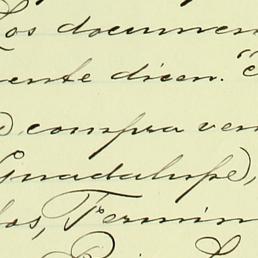 Los documen
ente dicen. "C
compra ven
Guadalupe,
los, Fermin